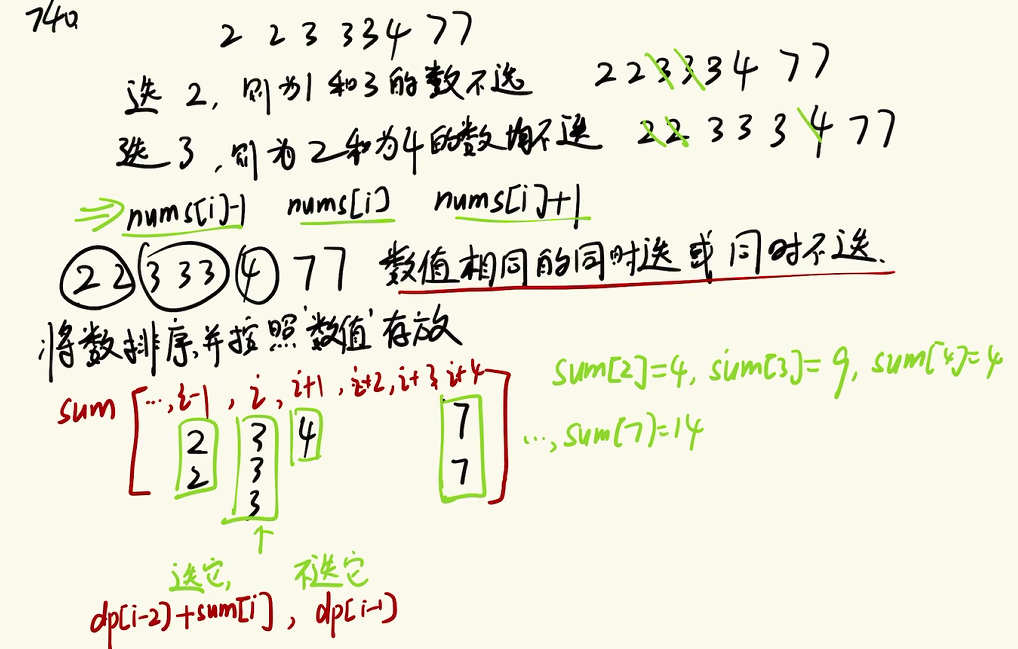 740.
2 2 3 3 3 4 7 7
选 2, 则为1和3的数不选 2 2 3 3 3 4 7 7
选 3, 则为2和为4的数均不选 2 2 3 3 3 4 7 7
⇒ nums[i]-1 nums[i] nums[i]+1
2 2 3 3 3 4 7 7 数值相同的同时选 或 同时不选.
将数排序,并按照'数值'存放
sum[2]=4, sum[3]=9, sum[4]=4
sum [ ..., i-1, i, i+1, i+2, i+3, i+4 ]
2 3 4 7
..., sum[7]=14
2 3 7
3
↑
选它, 不选它
dp[i-2]+sum[i], dp[i-1]